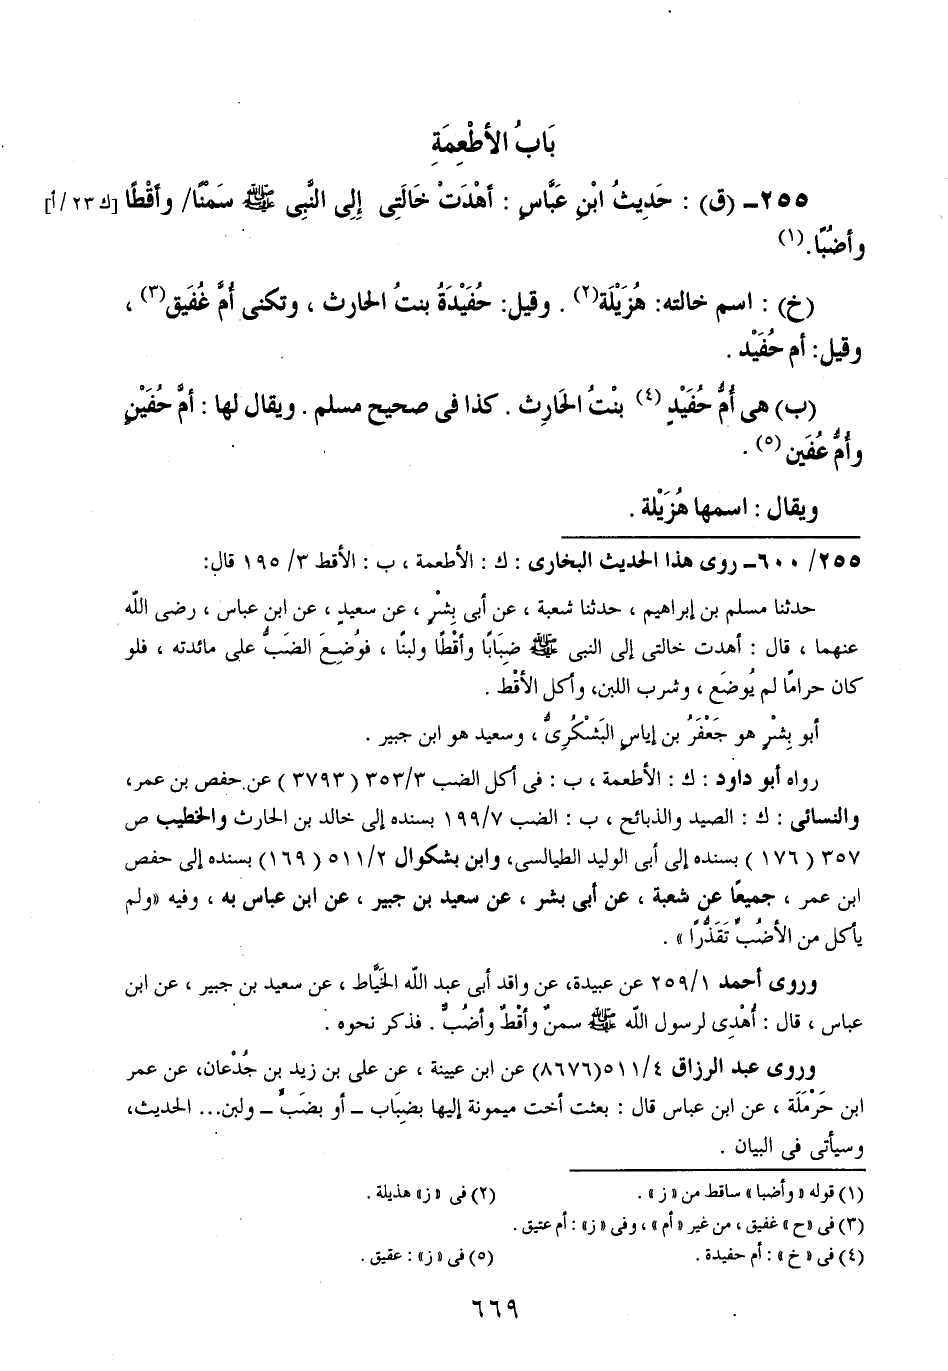 بَابُ الأطْعِمَةِ
٢٥٥ـ (ق) : حَدِيثُ ابْنِ عَبَّاسٍ : أهْدَتْ خَالَتِى إِلِى النَّبِى ﷺ سَمْنًا/ وأقْطًا [ك ٢٣/ أ]
وأضُبًّا.(١)
(خ) : اسم خالته: هُزَيْلَة(٢) . وقيل: حُفَيْدَةُ بنتُ الحارث ، وتكنى أُمَّ غُفَيق(٣) ،
وقيل: أم حُفَيْد .
(ب) هى أُمُّ حُفَيْدٍ (٤) بنْتُ الحَارِث . كذا فى صحيح مسلم . ويقال لها : أمَّ حُفَيْنٍ
وأُمُّ عُفَين (٥) .
ويقال : اسمها هُزَيْلة .
٢٥٥/ ٦٠٠ـ روى هذا الحديث البخارى : ك : الأطعمة ، ب : الأقط ٣/ ١٩٥ قال:
حدثنا مسلم بن إبراهيم ، حدثنا شعبة ، عن أبى بِشْرٍ ، عن سعيدٍ ، عن ابن عباس ، رضى اللَّه
عنهما ، قال : أهدت خالتى إلى النبى ﷺ ضِبَابًا وأقْطًا ولبنًا ، فوُضِعَ الضَبُّ على مائدته ، فلو
كان حرامًا لم يُوضَع ، وشرب اللبن، وأكل الأقْط .
أبو بِشْرٍ هو جَعْفَرُ بن إياسٍ البَشْكُرِىُّ ، وسعيد هو ابن جبير .
رواه أبو داود : ك : الأطعمة ، ب : فى أكل الضب ٣٥٣/٣ ( ٣٧٩٣ ) عن حفص بن عمر،
والنسائى : ك : الصيد والذبائح ، ب : الضب ١٩٩/٧ بسنده إلى خالد بن الحارث والخطيب ص
٣٥٧ ( ١٧٦ ) بسنده إلى أبى الوليد الطيالسى، وابن بشكوال ٥١١/٢ ( ١٦٩ ) بسنده إلى حفص
ابن عمر ، جميعًا عن شعبة ، عن أبى بشر ، عن سعيد بن جبير ، عن ابن عباس به ، وفيه «ولم
يأكل من الأضُبِّ تَقَذُّرًا » .
وروى أحمد ٢٥٩/١ عن عبيدة، عن واقد أبى عبد اللَّه الخَيَّاط ، عن سعيد بن جبير ، عن ابن
عباس ، قال : أُهْدِى لرسول اللَّه ﷺ سمنٌ وأقْطٌ وأضُبٌّ . فذكر نحوه .
وروى عبد الرزاق ٥١١/٤(٨٦٧٦) عن ابن عيينة ، عن على بن زيد بن جُدْعان، عن عمر
ابن حَرْمَلَة ، عن ابن عباس قال : بعثت أخت ميمونة إليها بضِبَاب ـ أو بضَبٍّ ـ ولبن... الحديث،
وسيأتى فى البيان .
(١) قوله «وأضبا» ساقط من «ز» .
(٢) فى «ز» هذيلة .
(٣) فى «ح» غفيق ، من غير «أم» ، وفى «ز» : أم عتيق .
(٤) فى «خ» : أم حفيدة .
(٥) فى «ز» : عقيق .
٦٦٩